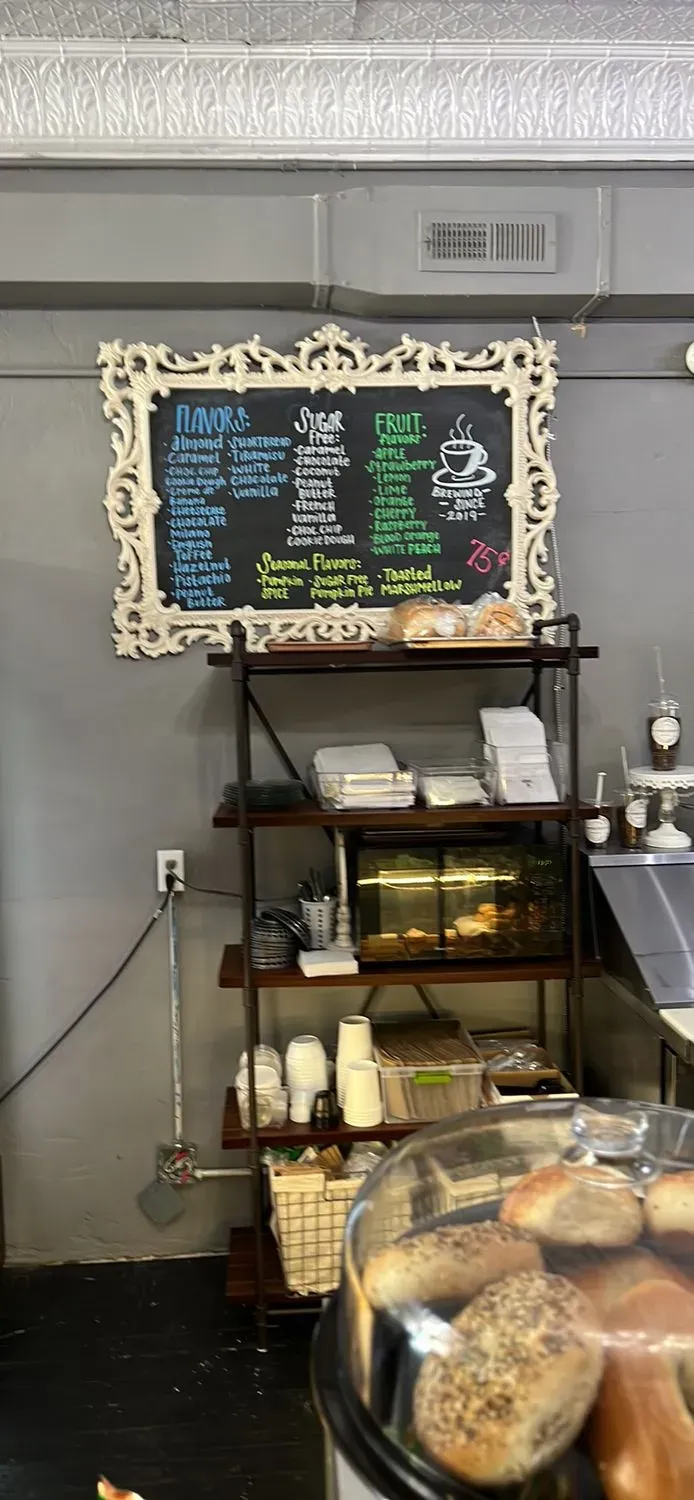 FLAVORS:
• almond
• Caramel
• CHOC. CHIP
COOKIE DOUGH
• Creme de
Banana
• CHEESECAKE
• CHOCOLATE
Milano
• English
Toffee
• Hazelnut
• Pistachio
• Peanut
Butter
• SHORTBREAD
• TIRAMISU
• WHITE
CHOCOLATE
• Vanilla
SUGAR
Free:
• Caramel
• CHOCOLATE
• Coconut
• Peanut
Butter
• French
Vanilla
• CHOC. CHIP
COOKIE DOUGH
FRUIT:
Flavors
• APPLE
• Strawberry
• Lemon
• Lime
• Orange
• CHERRY
• Raspberry
• Blood Orange
• WHITE PEACH
BREWING
- SINCE
- 2019 -
75¢
Seasonal Flavors:
• Pumpkin
SPICE
• SUGAR FREE
Pumpkin Pie
• TOASTED
MARSHMELLOW